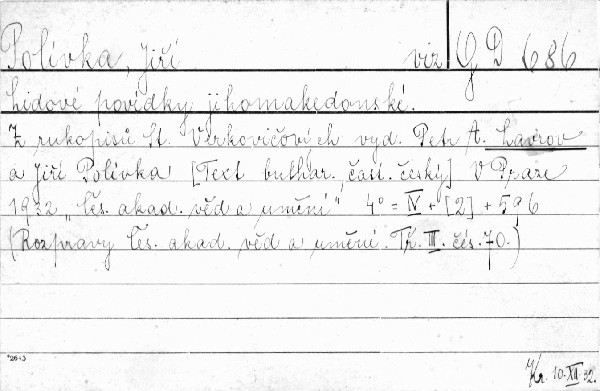 Polívka, Jiří viz G D 686
Lidové povídky jihomakedonské.
Z rukopisů St. Verkovičových vyd. Petr A. Lavrov
a Jiří Polívka [Text bulhar., část. český] V Praze
1932 „Čes. akad. věd a umění", 4° = IV + [2] + 596
(Rozpravy Čes. akad. věd a umění. Tř. III. čís. 70.)
*26-3
Kr. 10. XII. 32.